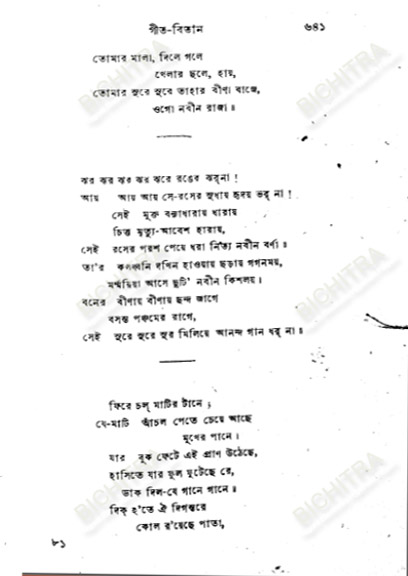 গীত-বিতান ৬৪১
তোমার মালা, দিলে গলে
খেলার ছলে, হায়,
তোমার সুরে সুরে তাহার বীণা বাজে,
ওগো নবীন রাজা॥
ঝর ঝর ঝর ঝর ঝরে রঙের ঝর্‌না!
আয় আয় আয় সে-রসের সুধায় হৃদয় ভর্‌ না!
সেই মুক্ত বন্যাধারায় ধারায়
চিত্ত মৃত্যু-আবেশ হারায়,
সেই রসের পরশ পেয়ে ধরা নিত্য নবীন বর্ণা॥
তা'র কলধ্বনি দখিন হাওয়ায় ছড়ায় গগনময়,
মর্ম্মরিয়া আসে ছুটি' নবীন কিশলয়।
বনের বীণায় বীণায় ছন্দ জাগে
বসন্ত পঞ্চমের রাগে,
সেই সুরে সুরে সুর মিলিয়ে আনন্দ গান ধর্‌ না॥
ফিরে চল্‌ মাটির টানে;
যে-মাটি আঁচল পেতে চেয়ে আছে
মুখের পানে।
যার বুক ফেটে এই প্রাণ উঠেছে,
হাসিতে যার ফুল ফুটেছে রে,
ডাক দিল-যে গানে গানে॥
দিক্‌ হ'তে ঐ দিগন্তরে
কোল র'য়েছে পাতা,
৮১
BICHITRA
BICHITRA
BICHITRA
BICHITRA
BICHITRA
BICHITRA